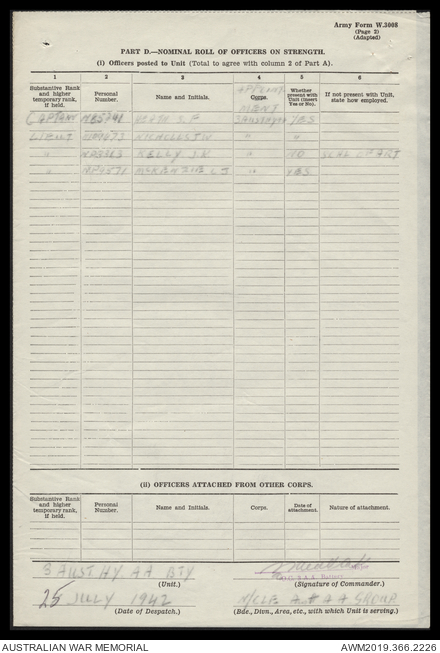 Army Form W.3008
(Page 2)
(Adapted)
PART D.—NOMINAL ROLL OF OFFICERS ON STRENGTH.
(i) Officers posted to Unit (Total to agree with column 2 of Part A).
1 2 3 4 5 6
Substantive Rank and higher temporary rank, if held. Personal Number. Name and Initials. Corps. Whether present with Unit (insert Yes or No). If not present with Unit, state how employed.
CAPTAIN YES
LIEUT NICHOLLS J W " "
" KELLY J.V " NO SCHL OF ART
" NF9571 McKENZIE L J " YES
(ii) OFFICERS ATTACHED FROM OTHER CORPS.
Substantive Rank and higher temporary rank, if held. Personal Number. Name and Initials. Corps. Date of attachment. Nature of attachment.
3 AUST HY AA BTY
(Unit.) (Signature of Commander.)
25 JULY 1942 A A GROUP
(Date of Despatch.) (Bde., Divn., Area, etc., with which Unit is serving.)
AUSTRALIAN WAR MEMORIAL AWM2019.366.2226